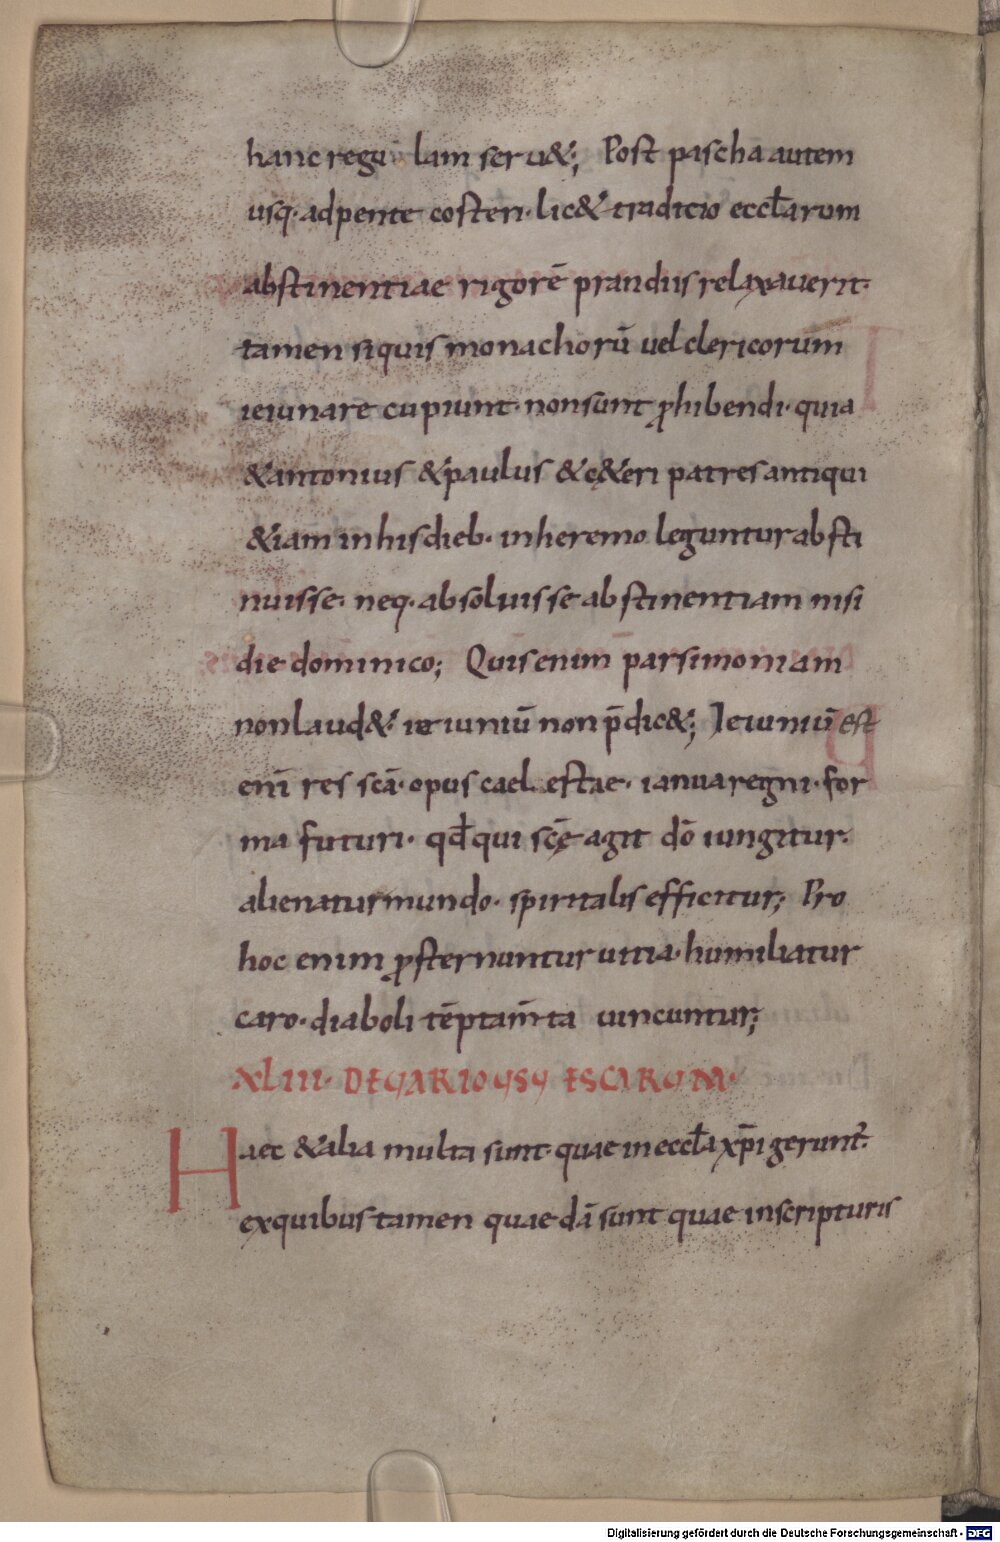 hanc regu lam seru&; Post pascha autem
usq· ad pente costen· lic& traditio eccl̄arum
abstinentiae rigorē prandiis relaxauerit·
tamen siquis monachorū uel clericorum
ieiunare cupiunt· non sunt ꝓhibendi· quia
& antonius & paulus & c&eri patres antiqui
&iam in his dieb· in heremo leguntur absti
nuisse· neq· absoluisse abstinentiam nisi
die dominico; Quis enim parsimoniam
non laud&· ieiuniū non p̄dic&; Ieiuniū est
enī res scā· opus cael estae· ianua regni· for
ma futuri· qđ qui scę agit dō iungitur·
alienatur mundo· spiritalis efficitur; Pro
hoc enim ꝓsternuntur uitia· humiliatur
caro· diaboli tēptam̄ta uincuntur;
XLIII· DE UARIO USU ESCARUM·
Haec & alia multa sunt· quae in eccl̄a xp̄i gerunt̄·
ex quibus tamen quaedā sunt quae in scripturis
Digitalisierung gefördert durch die Deutsche Forschungsgemeinschaft - DFG